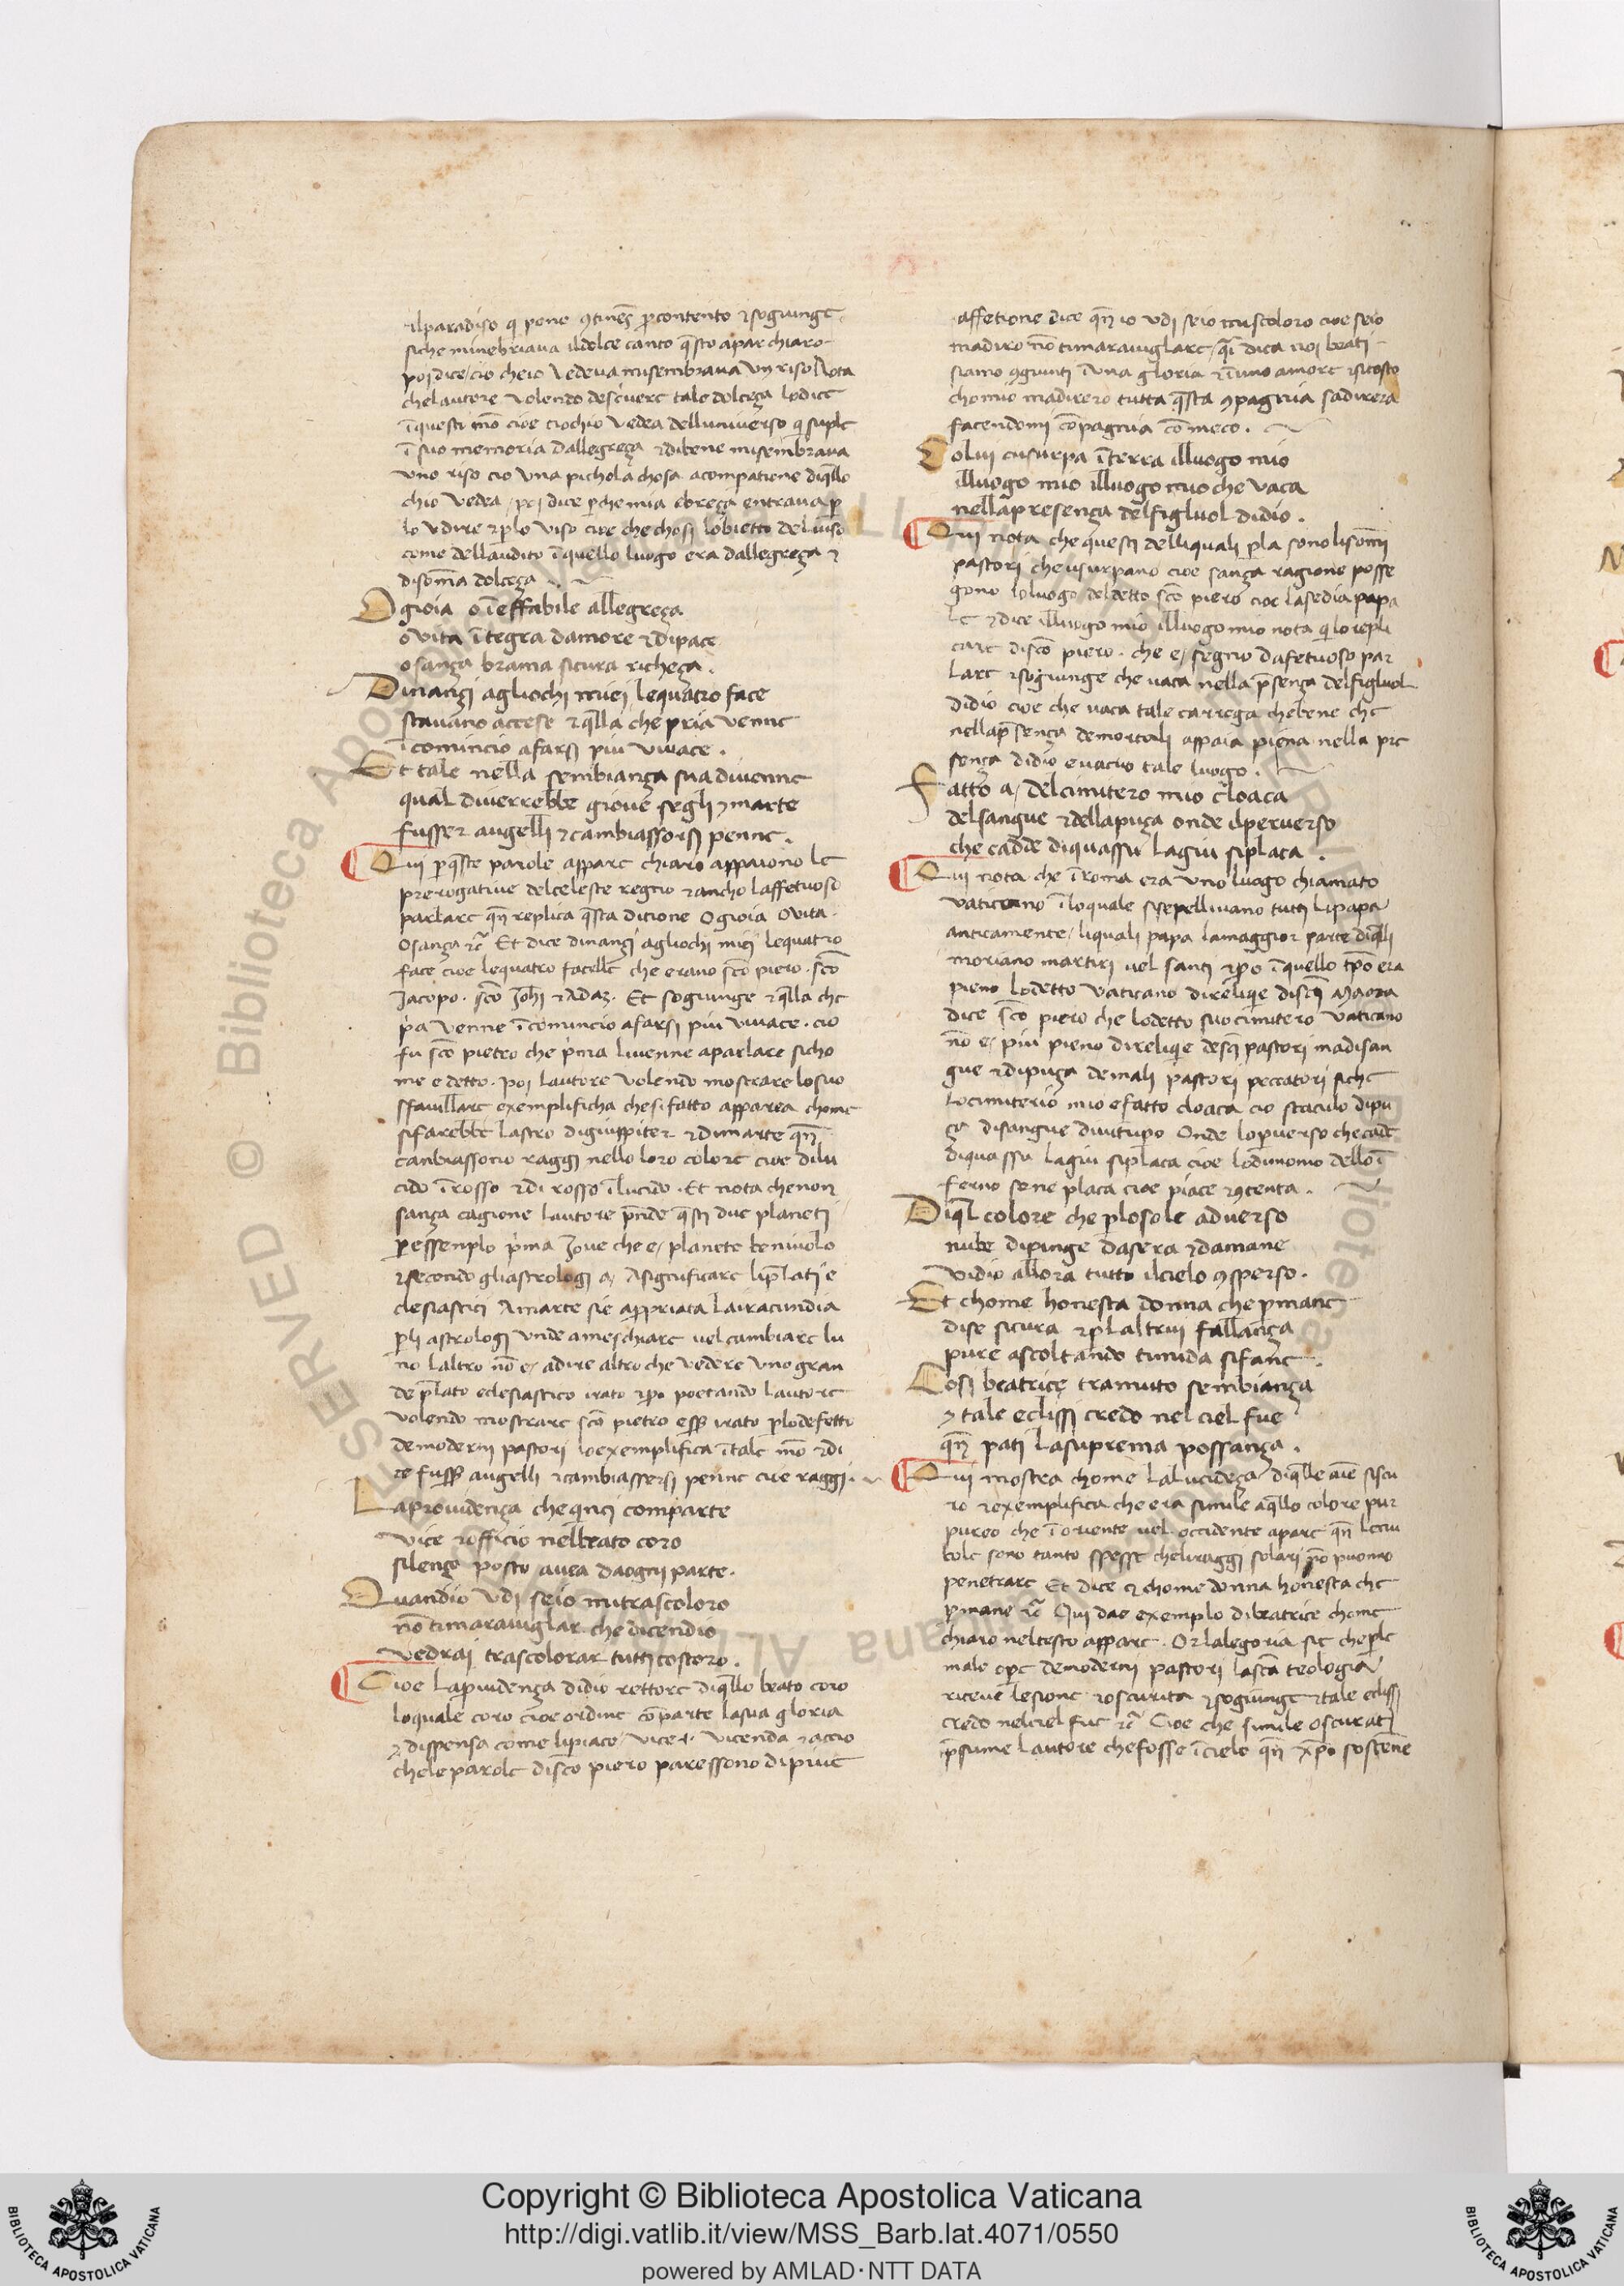 ilparadiso q̄ pone ꝯtinēs ꝑcontento ⁊sogiunge
siche minebriaua ildolce canto q̄sto apar chiaro
poi dice / cio cheio Vedeua misembraua Vn riso Nota
chelautore volendo descriuere tale dolceça lodice
ī questi mō cioe ciochio Vedea delluniuerso
ī suo memoria dallegreça ⁊dibene misembraua
vno riso cio Vna pichola chosa acompatione diq̄llo
chio Vedea / poi dice ꝑche mia ebreça entraua ꝑ
lo Vdire ⁊ꝑlo Viso cioe che chosi lobietto deluiso
come dellaudito ī quello luogo era dallegreça ⁊
disoma dolceça
O gioia o īeffabile allegreça
o Vita ītegra damore ⁊dipace
o sança brama sicura richeça .
Dinançi agliochi miei lequatro face
stauano accese ⁊q̄lla che pria venne
īcomincio afarsi piu viuace .
Et tale nella sembiança sua diuenne
qual diuerrebbe gioue segli ⁊marte
fusser augelli ⁊cambiassorsi penne .
Qui ꝑq̄ste parole appare chiaro appaiono le
prerogatiue delceleste regno ⁊ancho laffetuoso
parlare qn̄ replica q̄sta ditione O gioia O vita
O sança ⁊c̄ Et dice dinançi agliochi miei lequatro
face cioe lequatro facelle che erano sco piero . sco
Jacopo . sco Johi ⁊Ada3 . Et sogiunge ⁊q̄lla che
p̄a venne īcomincio afarsi piu viuace . cio
fu sco pietro che p̄ma liuenne aparlare sicho
me e detto . poi lautore volendo mostrare losuo
sfauillare exemplificha che si fatto apparea chome
sifarebbe lastro digiuppiter ⁊dimarte qn̄
canbiassono raggi nello loro colore cioe dilu
cido īrosso ⁊di rosso īlucido . Et nota chenon
sança cagione lautore p̄nde q̄sti due planeti
ꝑ essenplo p̄ma Joue che e / planeto beniuolo
⁊secondo gliastrologi a / Asignificare lip̄lati e
clesiastici A marte sie appriata lairacundia
ꝑli astrologi vnde ameschiare vel cambiare lu
no laltro nō e / adire altro che vedere vno gran
de p̄lato eclesiastico irato ⁊ꝑo poetando lautore
volendo mostrare sco pietro ess̄ irato ꝑlodefetto
demoderni pastori loexemplifica ītale mō ⁊di
ce fuss̄ augelli ⁊cambiassersi penne cioe raggi .
La prouidença cheq̄nci comparte
vice ⁊officio nelbeato coro
silenço posto auea daogni parte .
Quandio vdi seio mitrascoloro
nō timarauiglar che dicendio
vedrai trascolorar tutti costoro .
Cioe Laꝓuidença didio rettore diq̄llo beato coro
loquale coro cioe ordine cōparte lasua gloria
⁊ dispensa come lipiace / vice .i. vicenda ⁊accio
chele parole disco piero paressono dipiue
affetione dice qn̄ io vdi seio miscoloro cioe seio
madiro nō timarauiglare / q̄i dica noi beati
siamo ꝯgiunti īvna gloria ⁊īuno amore ⁊sitosto
chomio madirero tutta q̄sta ꝯpagnia sadirera
facendomi cōpagnia cō meco .
Colui cusurpa īterra illuogo mio
illuogo mio illuogo mio che vaca
nellapresença delfigluol didio .
Qui nota che questi delliquali ꝑla sono lisom̄i
pastori che usurpano cioe sança ragione posse
gono loluogo deldetto sco piero cioe lasedia papa
le ⁊dice illuogo mio illuogo mio nota q̄ lo repli
care disco piero . che e / segno dafetuoso par
lare ⁊sogiunge che vaca nella p̄sença delfigluol
didio cioe che vaca tale carrega chebene che
nellap̄sença demortali appaia piena nella pre
sença didio e vacuo tale luogo .
Fatto a / delcimitero mio cloaca
delsangue ⁊dellapuça onde ilperuerso
che cadde diquassu lagiu siplaca .
Qui nota che īroma era vno luogo chiamato
vaticano īloquale sisepelliuano tutti lipapa
anticamente / liquali papa lamaggior parte diq̄lli
moriano martiri vel santi ⁊ꝑo īquello tp̄o era
pieno lodetto vaticano direliqie disc̄i Maora
dice sco piero che lodetto suo cimitero vaticano
nō e / piu pieno direliqie desci pastori madisan
gue ⁊dipuça demali pastori peccatori siche
locimiterio mio efatto cloaca cio staculo dipu
ça disangue diuitupo Onde lopuerso checade
diquassu lagiu siplaca cioe lodimonio delloī
ferno sene placa cioe piace ⁊ꝯtenta .
Diq̄l colore che ꝑlosole aduerso
nube dipinge dasera ⁊damane
vidio allora tutto ilcielo ꝯsperso .
Et chome honesta donna che ꝑmane
dise sicura ⁊ꝑlaltrui fallança
pure ascoltando timida sifane .
Cosi beatrice tramuto sembiança
⁊ tale eclissi credo nel ciel fue
qn̄ pati lasuprema possança .
Qui mostra chome lalucideça diq̄lle aīe siscu
ro ⁊exemplifica che era simile aq̄llo colore pur
pureo che īoriente vel occidente apare qn̄ lenu
bole sono tanto spesse cheliraggi solari nō puonno
penetrare Et dice ⁊ chome donna honesta che
ꝑmane ⁊c̄ Qui dae exemplo dibeatrice chome
chiaro neltesto appare . Or lalegoria sie cheꝑle
male oꝑe demoderni pastori lasca teologia
riceue lesione ⁊oscurita ⁊sogiunge ⁊tale eclissi
credo nelciel fue ⁊c̄ Cioe che simile oscurati
p̄sume lautore chefosse īcielo qn̄ xp̄o sostene
Copyright © Biblioteca Apostolica Vaticana
http://digi.vatlib.it/view/MSS_Barb.lat.4071/0550
powered by AMLAD·NTT DATA
BIBLIOTECA APOSTOLICA VATICANA
BIBLIOTECA APOSTOLICA VATICANA